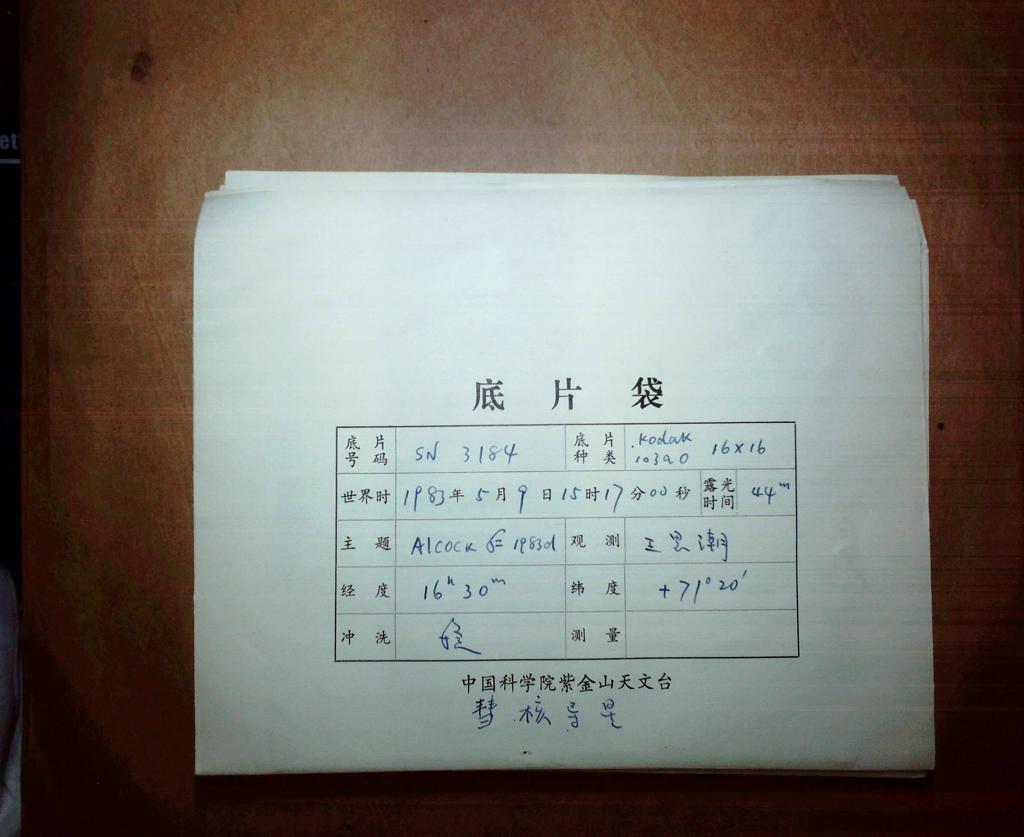 et
底 片 袋
底片号码 SN 3184 底片种类 Kodak 103aO 16×16
世界时 1983年5月9日15时17分00秒 露光时间 44ᵐ
主 题 Alcock 1983d 观 测 王思潮
经 度 16ʰ30ᵐ 纬 度 +71°20′
冲 洗 测 量
中国科学院紫金山天文台
彗核导星